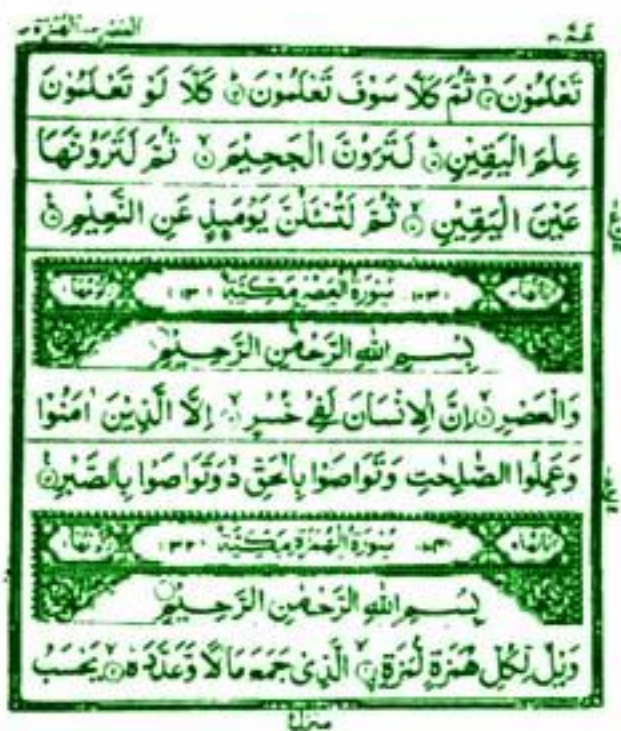 العصر ـ الهمزة
عم ٣٠
تَعْلَمُوْنَ ۙ ثُمَّ كَلَّا سَوْفَ تَعْلَمُوْنَ ؕ كَلَّا لَوْ تَعْلَمُوْنَ
عِلْمَ الْيَقِيْنِ ؕ لَتَرَوُنَّ الْجَحِيْمَ ۙ ثُمَّ لَتَرَوُنَّهَا
عَيْنَ الْيَقِيْنِ ۙ ثُمَّ لَتُسْـَٔلُنَّ يَوْمَىِٕذٍ عَنِ النَّعِيْمِ
سُوْرَةُ الْعَصْرِ مَكِّيَّةٌ
بِسْمِ اللّٰهِ الرَّحْمٰنِ الرَّحِيْمِ
وَالْعَصْرِ ۙ اِنَّ الْاِنْسَانَ لَفِیْ خُسْرٍ ۙ اِلَّا الَّذِيْنَ اٰمَنُوْا
وَعَمِلُوا الصّٰلِحٰتِ وَتَوَاصَوْا بِالْحَقِّ ۙ۬ وَتَوَاصَوْا بِالصَّبْرِ
سُوْرَةُ الْهُمَزَةِ مَكِّيَّةٌ
بِسْمِ اللّٰهِ الرَّحْمٰنِ الرَّحِيْمِ
وَيْلٌ لِّكُلِّ هُمَزَةٍ لُّمَزَةِ ۙ اِلَّذِیْ جَمَعَ مَالًا وَّعَدَّدَهٗ ۙ يَحْسَبُ
منزل